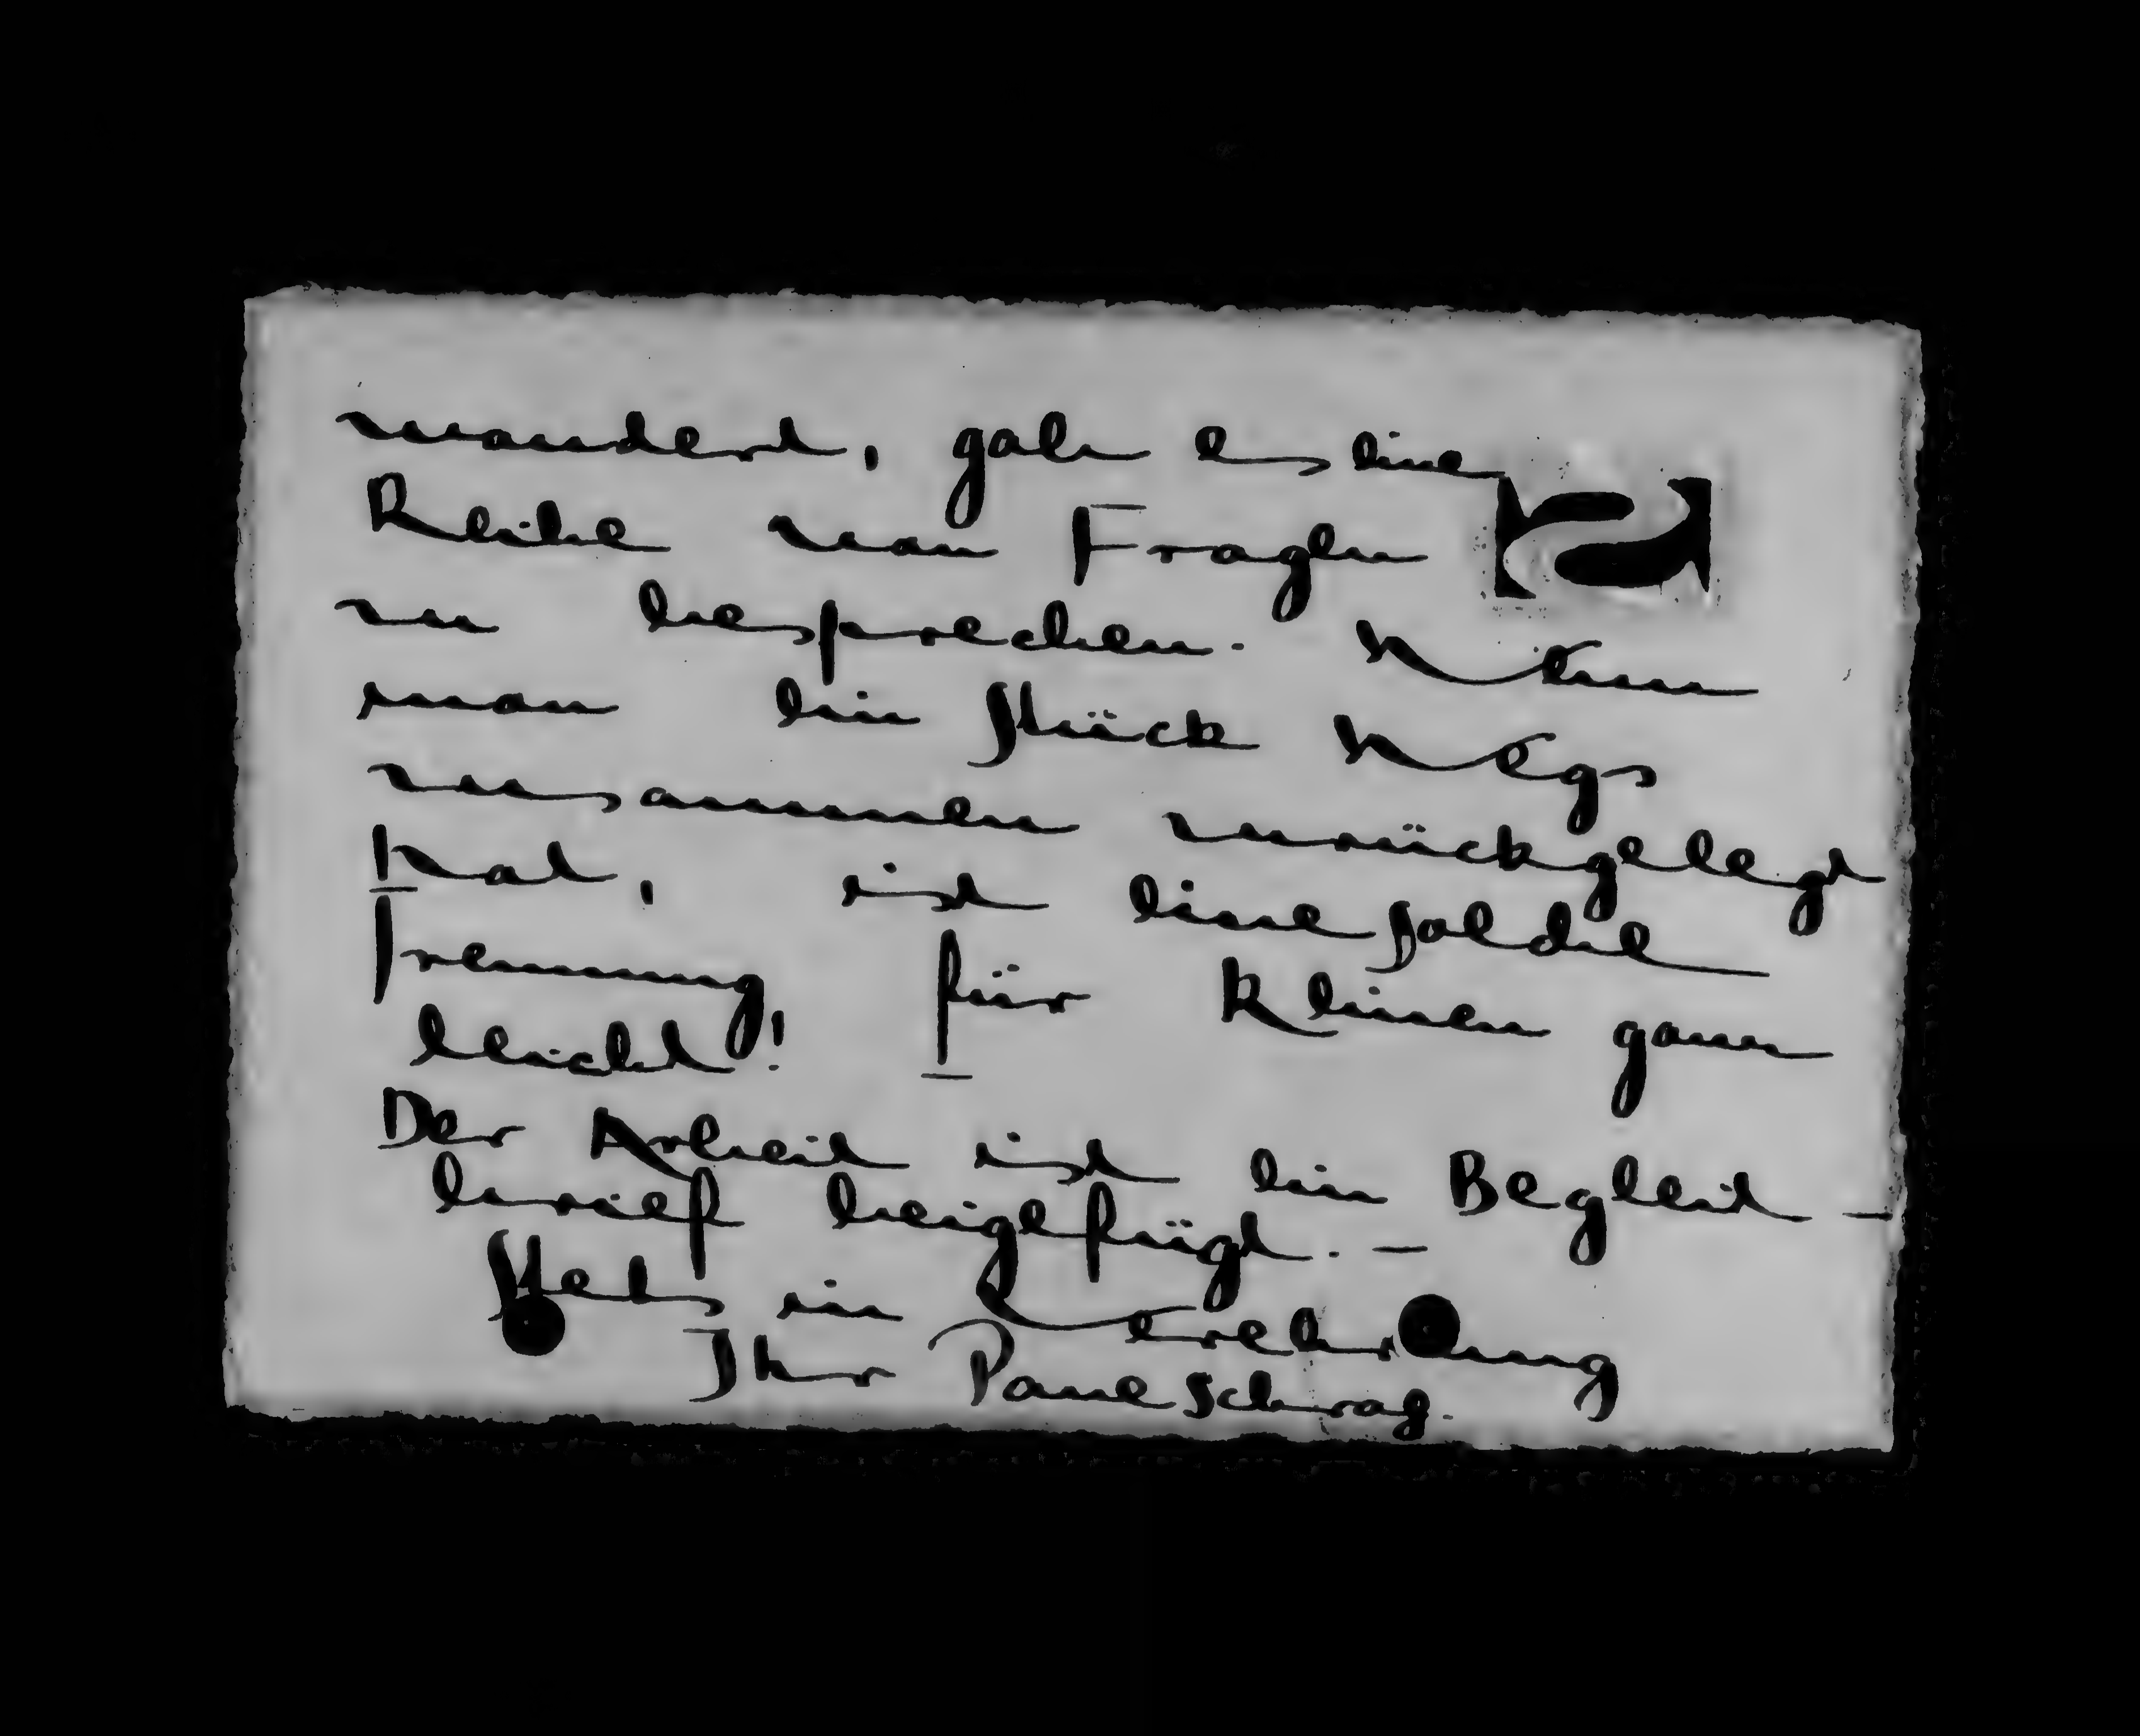 wandert, gab es eine
Reihe von Fragen
zu besprechen. Wenn
man ein Stück Wegs
zusammen zurückgelegt
hat, ist eine solche
Trennung, für Keinen ganz
leicht!
Der Arbeit ist ein Begleit-
brief beigefügt. —
Stets in Verehrung
Ihr Paul Schrag.